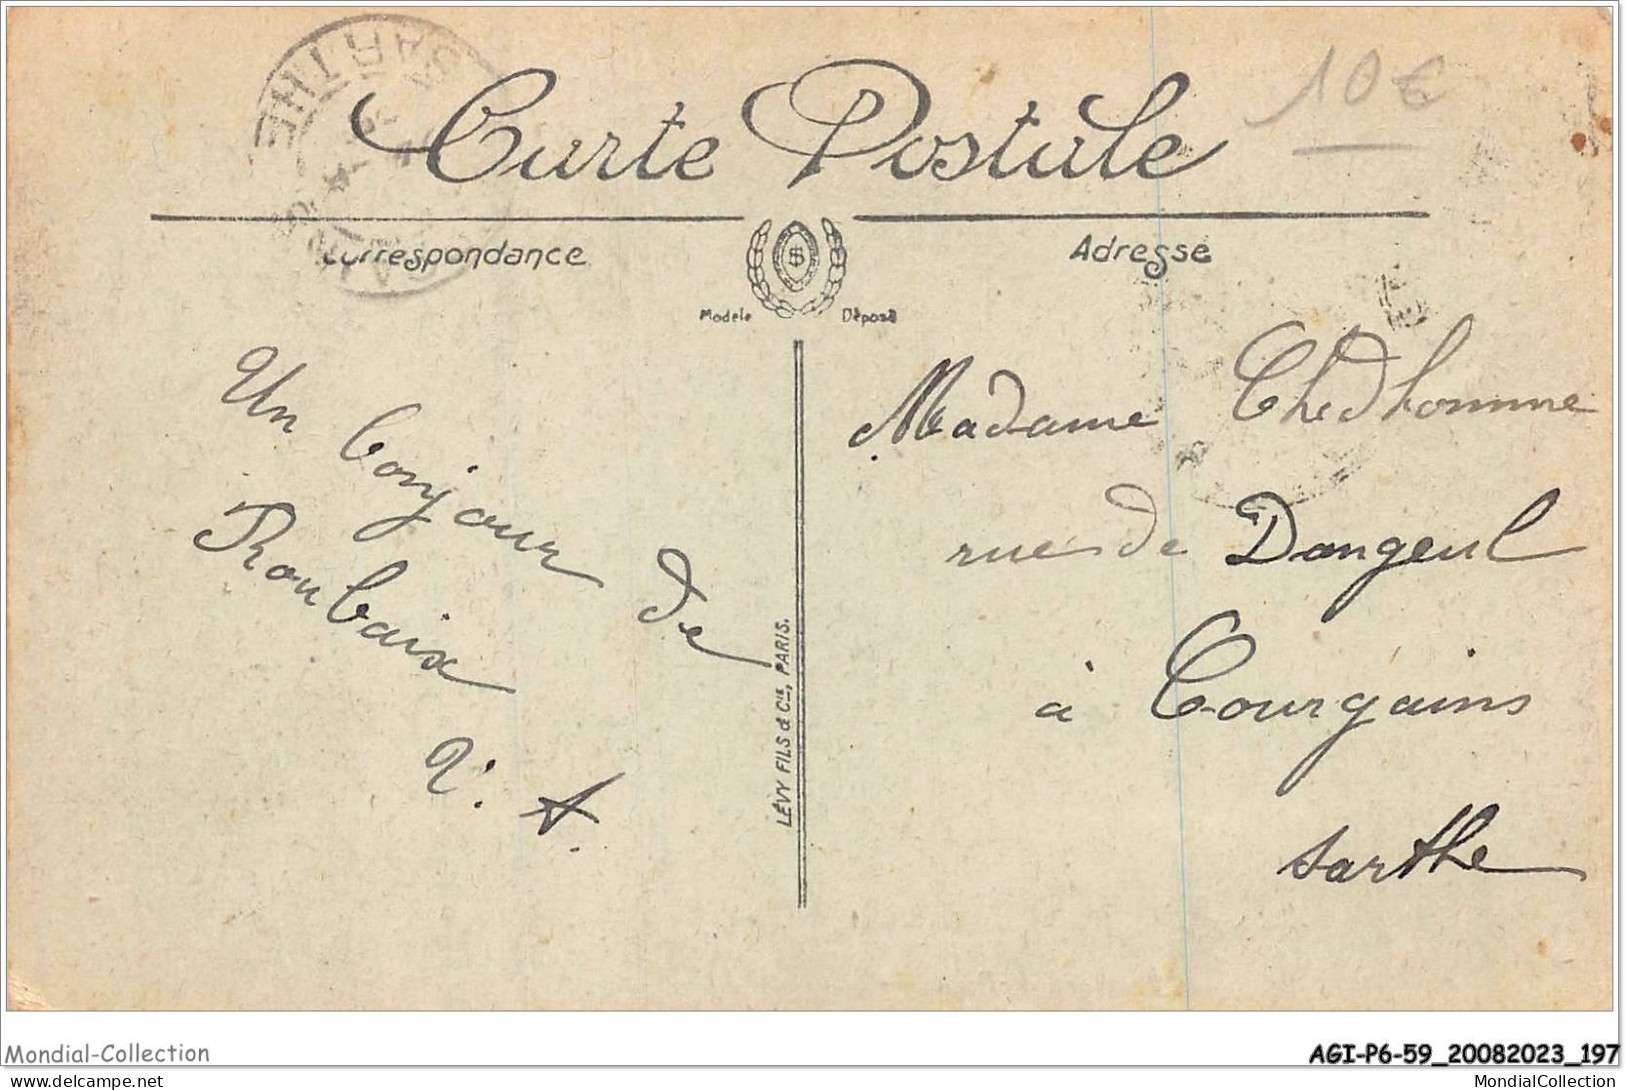 SARTHE
10€
Carte Postale
Correspondance
Adresse
Modèle Déposé
Un bonjour de
Roubaix
V. A.
LÉVY FILS & Cie, PARIS.
Madame Chedhomme
rue de Dangeul
à Courgains
Sarthe
Mondial-Collection
AGI-P6-59_20082023_197
delcampe.net
MondialCollection